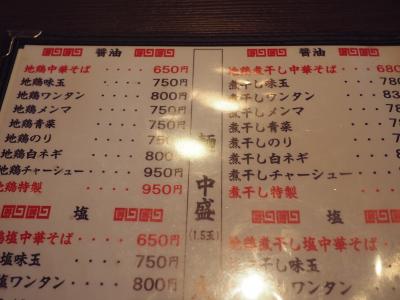 醤油
地鶏中華そば・・・・650円
地鶏味玉・・・・750円
地鶏ワンタン・・・・800円
地鶏メンマ・・・・750円
地鶏青菜・・・・750円
地鶏のり・・・・750円
地鶏白ネギ・・・・800円
地鶏チャーシュー・・・950円
地鶏特製・・・・950円
塩
地鶏塩中華そば・・・650円
塩味玉・・・・750円
塩ワンタン・・・・800円
麺
中盛
(1.5玉)
醤油
地鶏煮干し中華そば・・680
煮干し味玉・・・・780
煮干しワンタン・・・・83
煮干しメンマ・・・・78
煮干し青菜・・・・
煮干しのり・・・・
煮干し白ネギ・・・・
煮干しチャーシュー・・・
煮干し特製・・・・
塩
地鶏煮干し塩中華そば
煮干し塩味玉